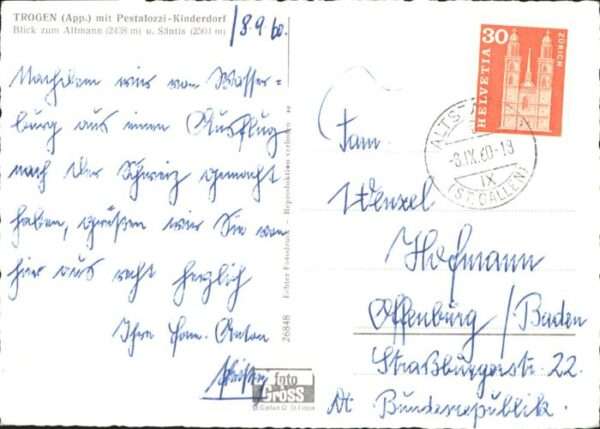 TROGEN (App.) mit Pestalozzi-Kinderdorf
Blick zum Altmann (2438 m) u. Säntis (2504 m)
8.9.60.
Nachdem wir von Wasser-
burg aus einen Ausflug
nach der Schweiz gemacht
haben, grüßen wir Sie von
hier aus recht herzlich
Ihre Fam. Anton
26848 Echter Fotodruck - Reproduktion verboten
foto
Gross
HELVETIA
30
ZÜRICH
ALTST
8.IX.60-19
IX
(ST. GALLEN)
Fam.
Wenzel
Hofmann
Offenburg/Baden
Straßburgerstr. 22.
Bundesrepublik.